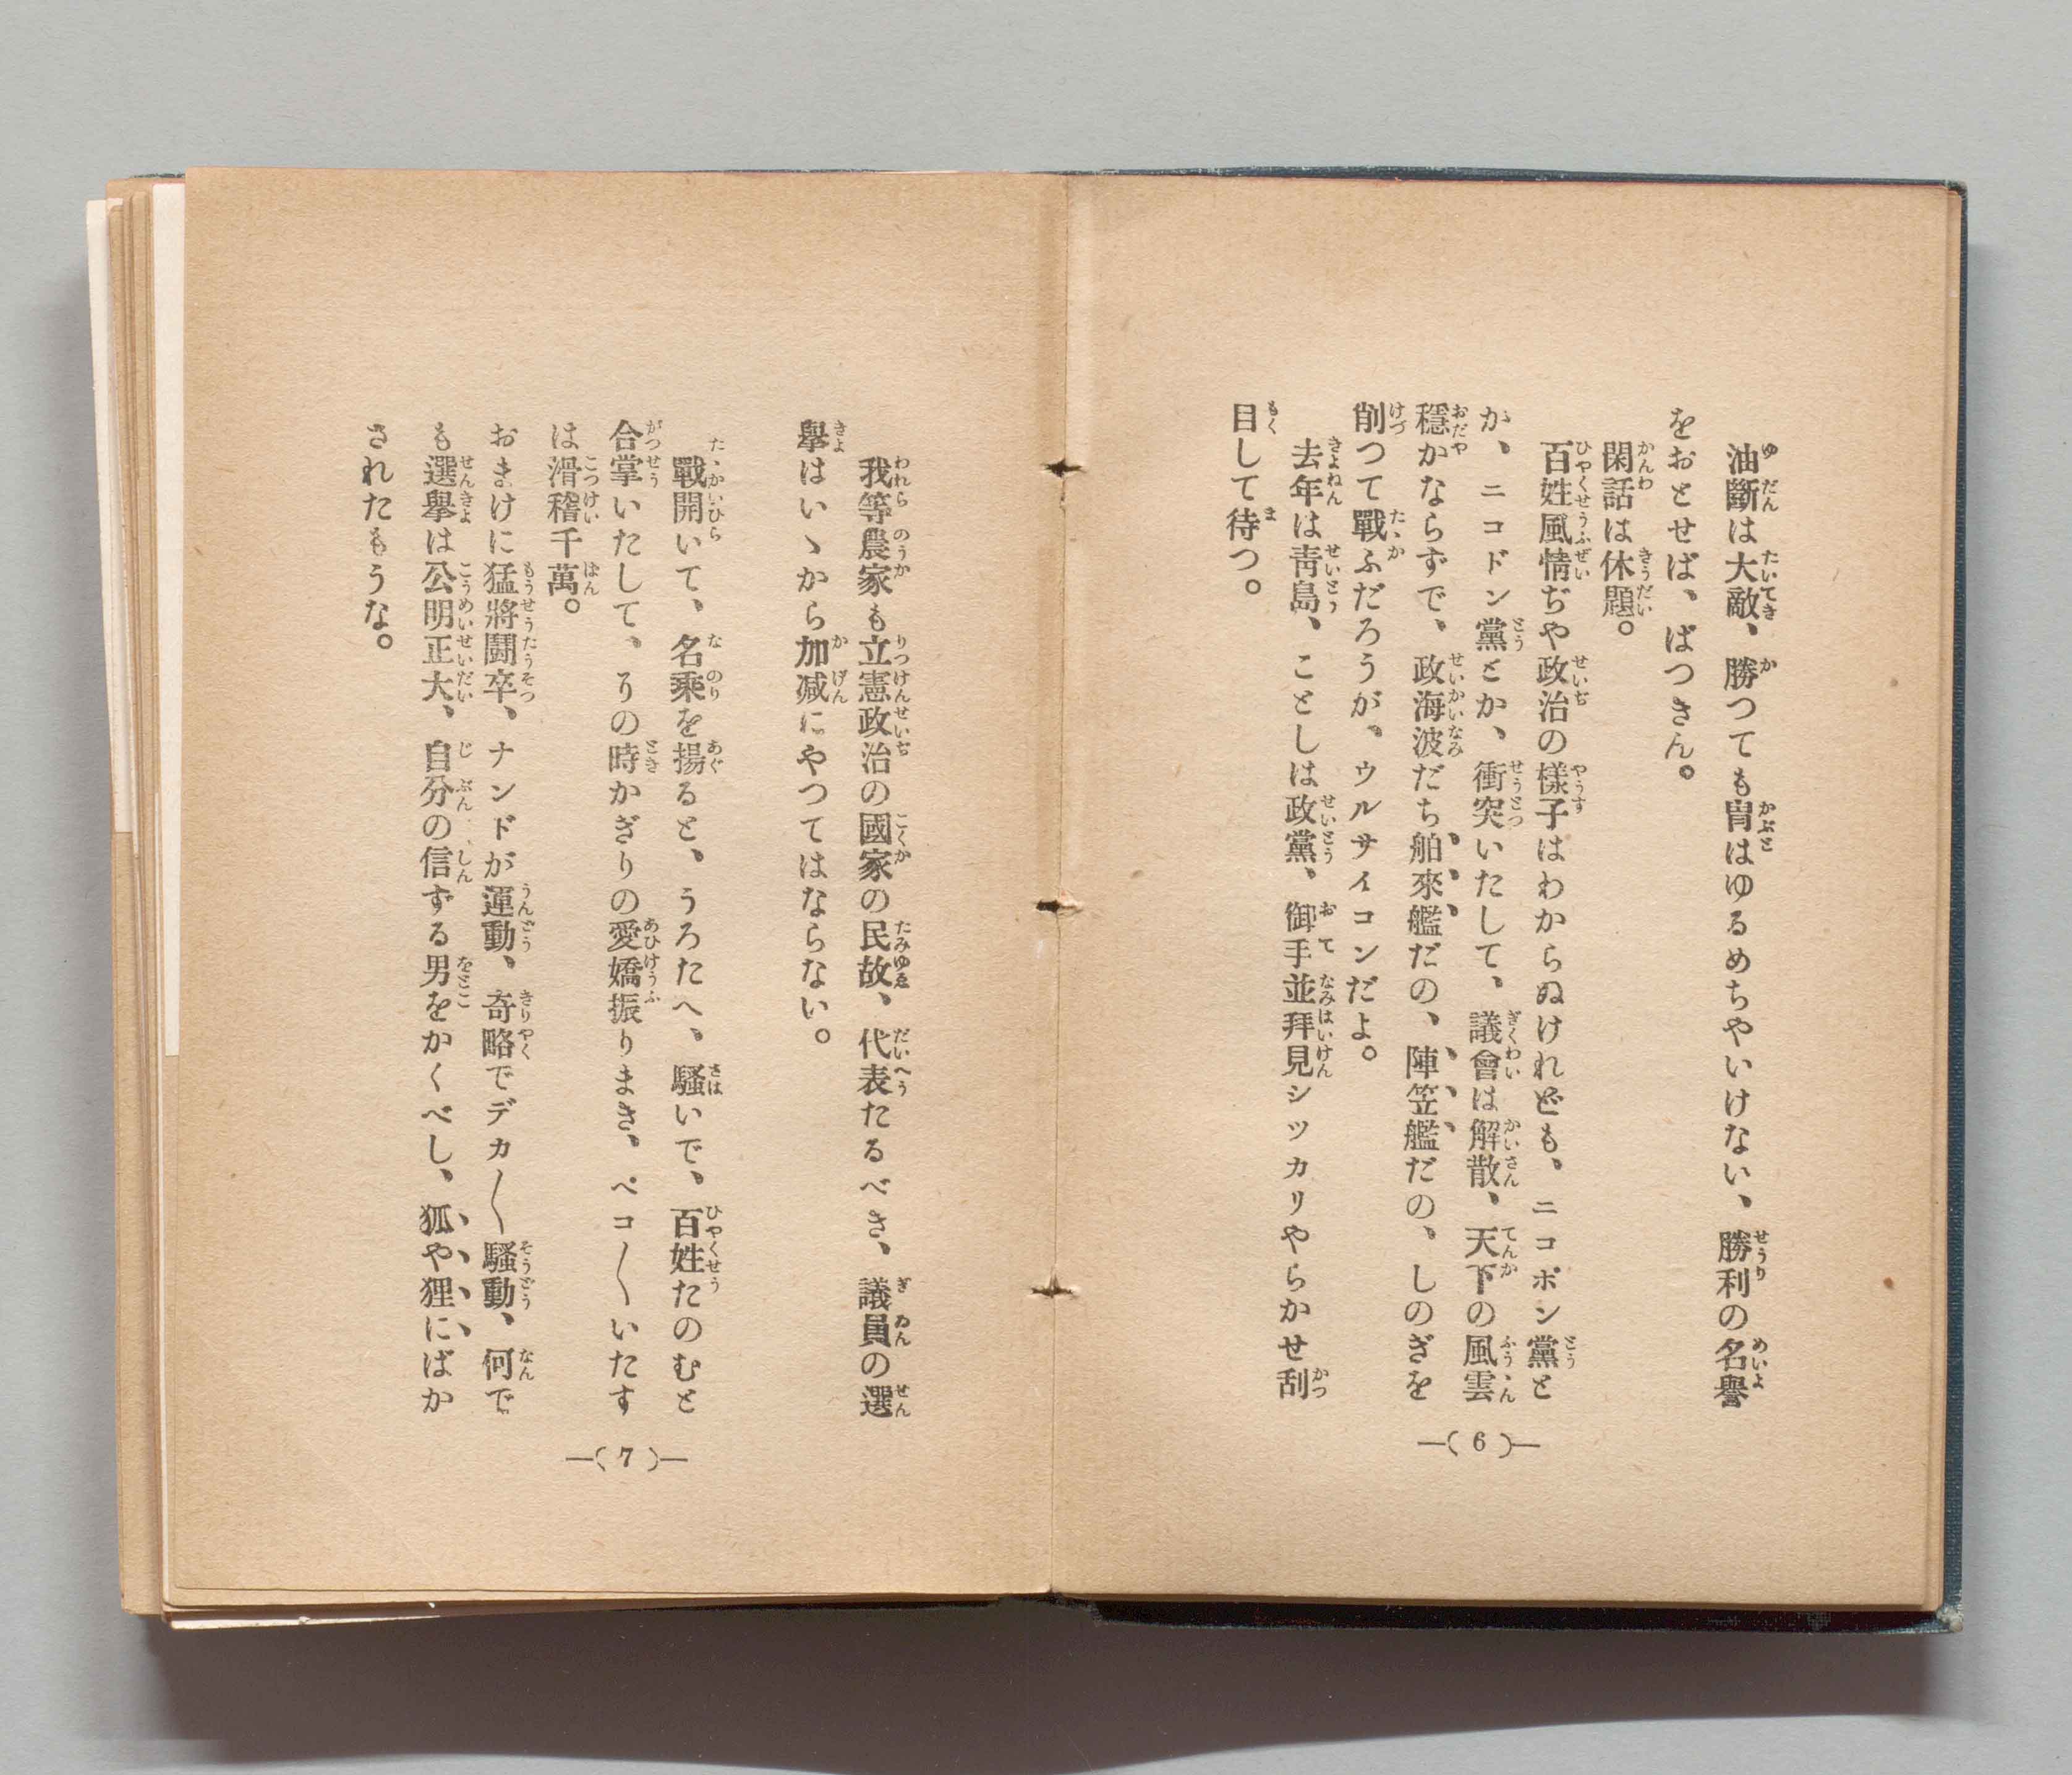 油斷は大敵、勝つても冑はゆるめちやいけない、勝利の名譽
をおとせば、ばつきん。
閑話は休題。
百姓風情ぢや政治の樣子はわからぬけれども、ニコポン黨と
か、ニコドン黨とか、衝突いたして、議會は解散、天下の風雲
穩かならずで、政海波だち舶來艦だの、陣笠艦だの、しのぎを
削つて戰ふだろうが、ウルサイコンだよ。
去年は靑島、ことしは政黨、御手並拜見シツカリやらかせ刮
目して待つ。
—( 6 )—
我等農家も立憲政治の國家の民故、代表たるべき、議員の選
擧はいゝから加减にやつてはならない。
戰開いて、名乘を揚ると、うろたへ、騷いで、百姓たのむと
合掌いたして、其の時かぎりの愛嬌振りまき、ペコ〱いたす
は滑稽千萬。
おまけに猛將鬪卒、ナンドが運動、奇略でデカ〱騷動、何で
も選擧は公明正大、自分の信ずる男をかくべし、狐や狸にばか
されたもうな。
—( 7 )—